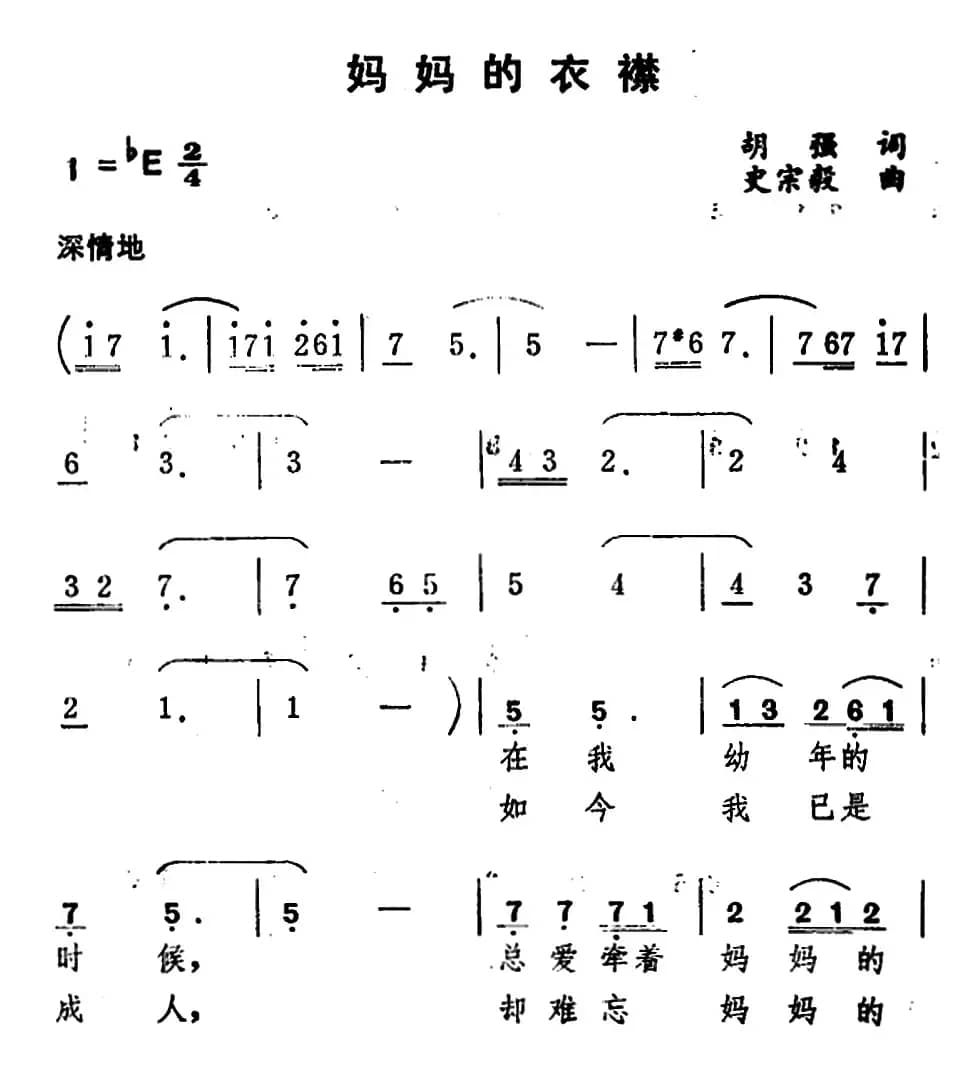 妈妈的衣襟
1=♭E 2/4
胡强 词
史宗毅 曲
深情地
(i7 i.|i7i 26i|7 5.|5 —|7#6 7.|7 67 i7|
6 3.|3 —|4 3 2.|2 4|
3 2 7.|7 6 5|5 4|4 3 7|
2 1.|1 —)|5 5.|1 3 2 6 1|
在我 幼年的
如今 我已是
7 5.|5 —|7 7 7 1|2 2 1 2
时候, 总爱牵着 妈妈的
成人, 却难忘 妈妈的